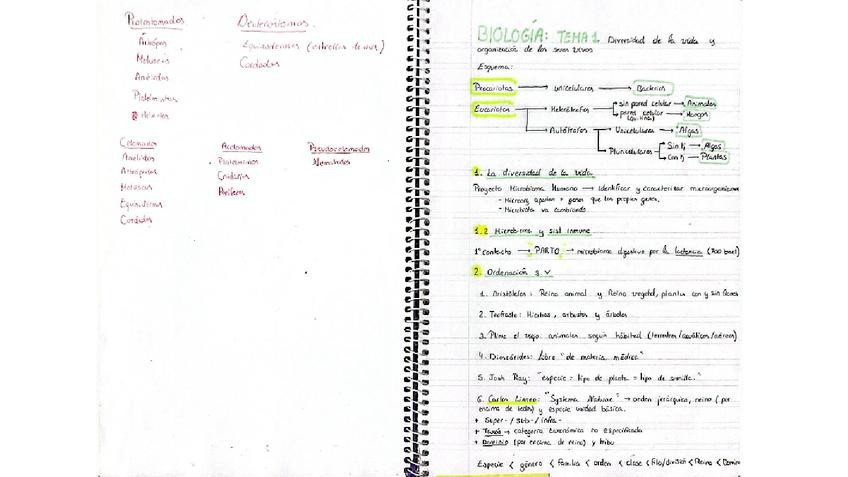 Protostomados
Artrópos
Moluscos
Anélidos
Platelmintos
Deuteróstomos.
Equinodermos (estrellas de mar)
Cordados
Celomados
Anélidos
Artrópodos
Moluscos
Equinodermos
Cordados
Acelomados
Platelmintos
Cnidarios
Poríferos
Pseudocelomados
Nematodos
BIOLOGÍA: TEMA 1. Diversidad de la vida y
organización de los seres vivos
Esquema:
Procariotas → unicelulares → Bacterias
Eucariotas → Heterótrofos → sin pared celular → Animales
pared celular (quitina) → Hongos
Autótrofos → Unicelulares → Algas
Pluricelulares → Sin tj → Algas
Con tj → Plantas
1. La diversidad de la vida.
Proyecto Microbioma Humano → identificar y caracterizar microorganismos
- Microorg. aportan + genes que los propios genes.
- Microbiota va cambiando.
1.2 Microbioma y sist inmune
1º contacto → PARTO → microbioma digestivo por la lactancia (700 bact)
2. Ordenación s.v
1. Aristóteles: Reino animal y Reino vegetal, plantas con y sin flores
2. Teofrasto: Hierbas, arbustos y árboles
3. Plinio el viejo: animales según hábitat (terrestres/acuáticos/aéreos)
4. Dioscórides: Libro "de materia médica"
5. Jonh Ray: "especie = tipo de planta = tipo de semilla."
6. Carlos Linneo: "Systema Naturae" → orden jerárquico, reino (por
encima de todos) y especie unidad básica.
+ Super- / Sub- / infra-
+ Taxón → categoría taxonómica no especificada
+ Dominio (por encima de reino) y tribu
Especie < género < Familia < orden < clase < filo/división < Reino < Domin